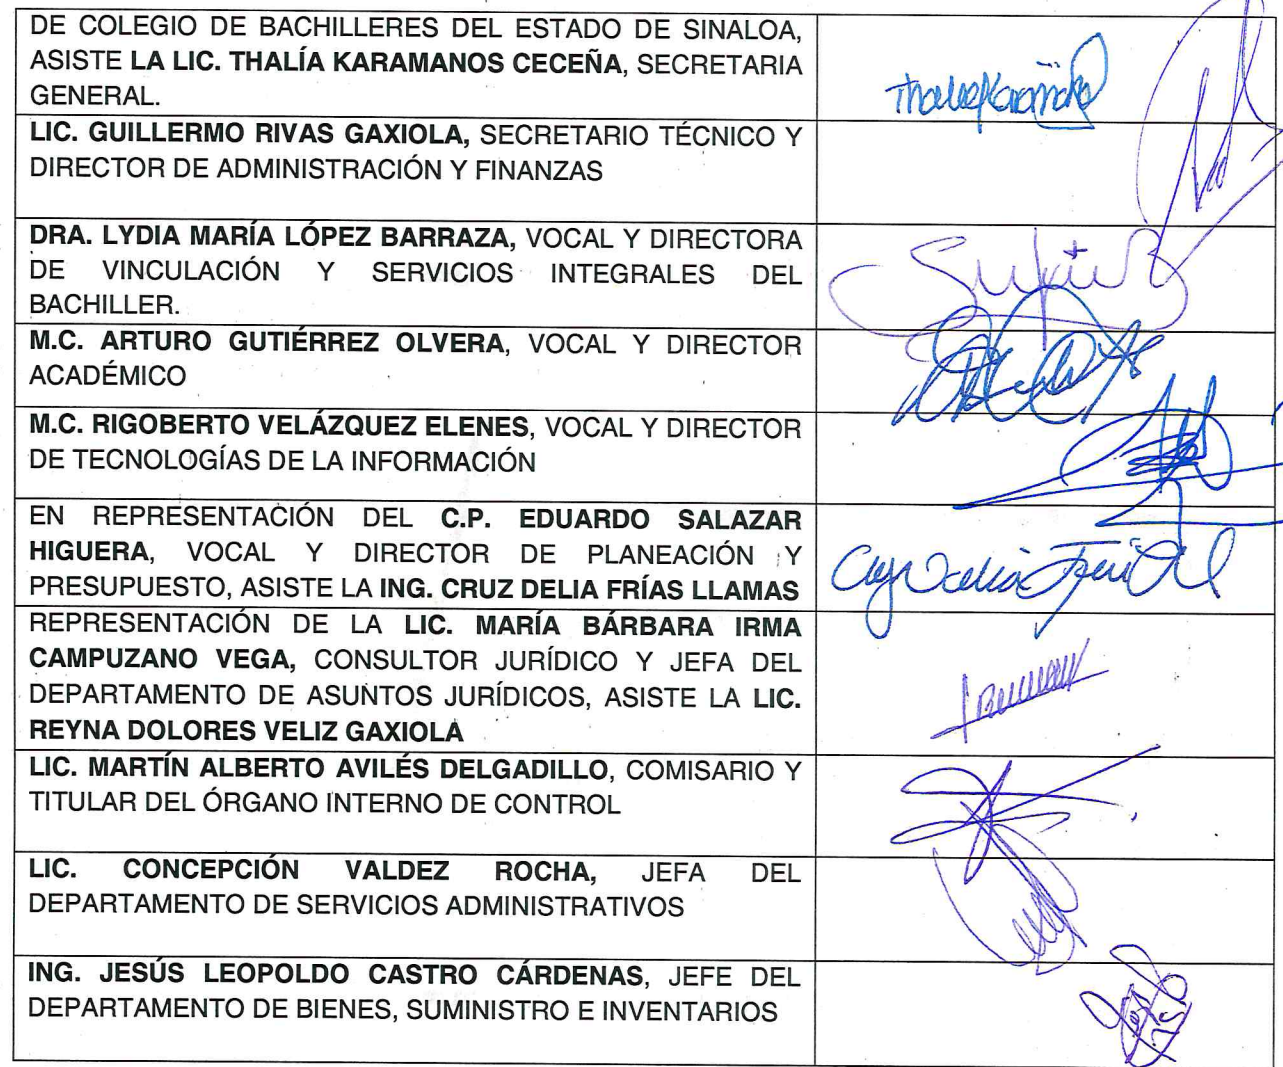 DE COLEGIO DE BACHILLERES DEL ESTADO DE SINALOA,
ASISTE LA LIC. THALÍA KARAMANOS CECEÑA, SECRETARIA
GENERAL.
LIC. GUILLERMO RIVAS GAXIOLA, SECRETARIO TÉCNICO Y
DIRECTOR DE ADMINISTRACIÓN Y FINANZAS
DRA. LYDIA MARÍA LÓPEZ BARRAZA, VOCAL Y DIRECTORA
DE VINCULACIÓN Y SERVICIOS INTEGRALES DEL
BACHILLER.
M.C. ARTURO GUTIÉRREZ OLVERA, VOCAL Y DIRECTOR
ACADÉMICO
M.C. RIGOBERTO VELÁZQUEZ ELENES, VOCAL Y DIRECTOR
DE TECNOLOGÍAS DE LA INFORMACIÓN
EN REPRESENTACIÓN DEL C.P. EDUARDO SALAZAR
HIGUERA, VOCAL Y DIRECTOR DE PLANEACIÓN Y
PRESUPUESTO, ASISTE LA ING. CRUZ DELIA FRÍAS LLAMAS
REPRESENTACIÓN DE LA LIC. MARÍA BÁRBARA IRMA
CAMPUZANO VEGA, CONSULTOR JURÍDICO Y JEFA DEL
DEPARTAMENTO DE ASUNTOS JURÍDICOS, ASISTE LA LIC.
REYNA DOLORES VELIZ GAXIOLA
LIC. MARTÍN ALBERTO AVILÉS DELGADILLO, COMISARIO Y
TITULAR DEL ÓRGANO INTERNO DE CONTROL
LIC. CONCEPCIÓN VALDEZ ROCHA, JEFA DEL
DEPARTAMENTO DE SERVICIOS ADMINISTRATIVOS
ING. JESÚS LEOPOLDO CASTRO CÁRDENAS, JEFE DEL
DEPARTAMENTO DE BIENES, SUMINISTRO E INVENTARIOS